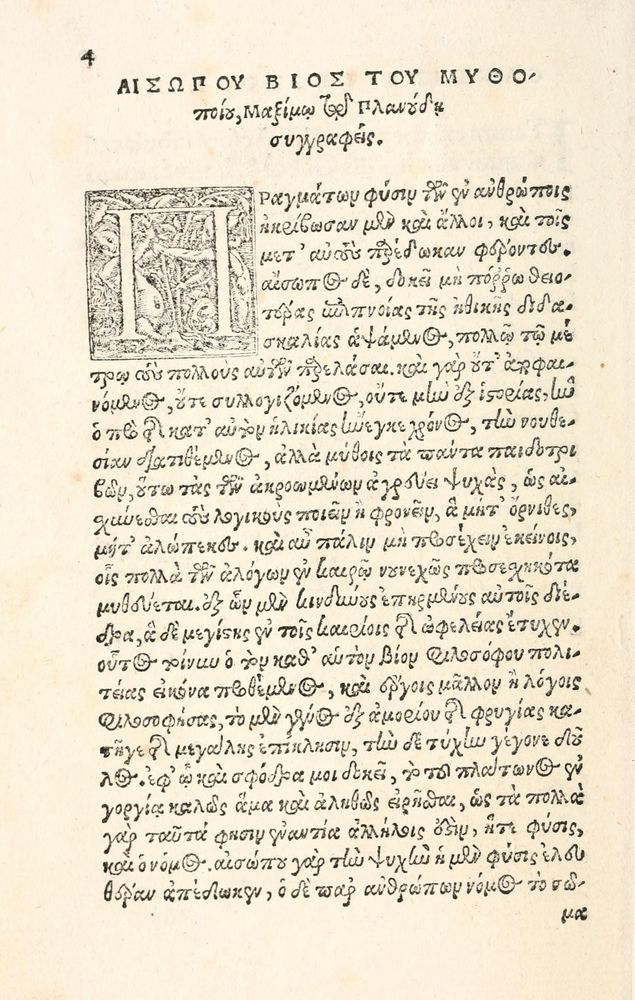 4
ΑΙΣΩΠΟΥ ΒΙΟΣ ΤΟΥ ΜΥΘΟ-
ποιοῦ, Μαξίμῳ τῷ Πλανούδῃ
συγγραφείς.
ΠΡαγμάτων φύσιν τῶν ἐν ἀνθρώποις
ἠκρίβωσαν μὲν καὶ ἄλλοι, καὶ τοῖς
μετ' αὐτοὺς παρέδωκαν φέροντες.
αἴσωπος δὲ, δοκεῖ μὴ πόῤῥω θειο-
τέρας ἐπιπνοίας τῆς ἠθικῆς διδα-
σκαλίας ἁψάμενος, πολλῷ τῷ μέ
τρῳ τοὺς πολλοὺς αὐτῶν παρελάσαι. καὶ γὰρ οὔτ' ἀποφαι-
νόμενος, οὔτε συλλογιζόμενος, οὔτε μὴν ἐξ ἱστορίας, ἣν
ὁ πρὸ τῆς κατ' αὐτὸν ἡλικίας ἤνεγκε χρόνος, τὴν νουθε-
σίαν διατιθέμενος, ἀλλὰ μύθοις τὰ πάντα παιδοτρι
βῶν, οὕτω τὰς τῶν ἀκροωμένων ἀγρεύει ψυχὰς, ὡς αἰ-
σχύνεσθαι τοὺς λογικοὺς ποιεῖν ἢ φρονεῖν, ἃ μήτ' ὄρνιθες,
μήτ' ἀλώπεκες. καὶ αὖ πάλιν μὴ προσέχειν ἐκείνοις,
οἷς πολλὰ τῶν ἀλόγων ἐν καιρῷ νουνεχῶς προσεχηκότα
μυθεύεται. ἐξ ὧν μὲν κινδύνους ἐπηρμένους αὐτοῖς διέ-
δρα, ἃ δὲ μεγίστης ἐν τοῖς καιρίοις τῆς ὠφελείας ἔτυχεν.
οὗτος τοίνυν ὁ τὸν καθ' αὑτὸν βίον φιλοσόφου πολι-
τείας εἰκόνα προθέμενος, καὶ ἔργοις μᾶλλον ἢ λόγοις
φιλοσοφήσας, τὸ μὲν γένος ἐξ ἀμορίου τῆς φρυγίας κα-
τῆγε τῆς μεγάλης ἐπίκλησιν, τὴν δὲ τύχην γέγονε δοῦ
λος. ἐφ' ᾧ καὶ σφόδρα μοι δοκεῖ, τὸ τοῦ πλάτωνος ἐν
γοργίᾳ καλῶς ἅμα καὶ ἀληθῶς εἰρῆσθαι, ὡς τὰ πολλὰ
γὰρ ταῦτά φησιν ἐναντία ἀλλήλοις ἐστὶν, ἥτε φύσις,
καὶ ὁ νόμος. αἰσώπου γὰρ τὴν ψυχὴν ἡ μὲν φύσις ἐλευ
θέραν ἀπέδωκεν, ὁ δὲ παρ' ἀνθρώπων νόμος τὸ σῶ-
μα